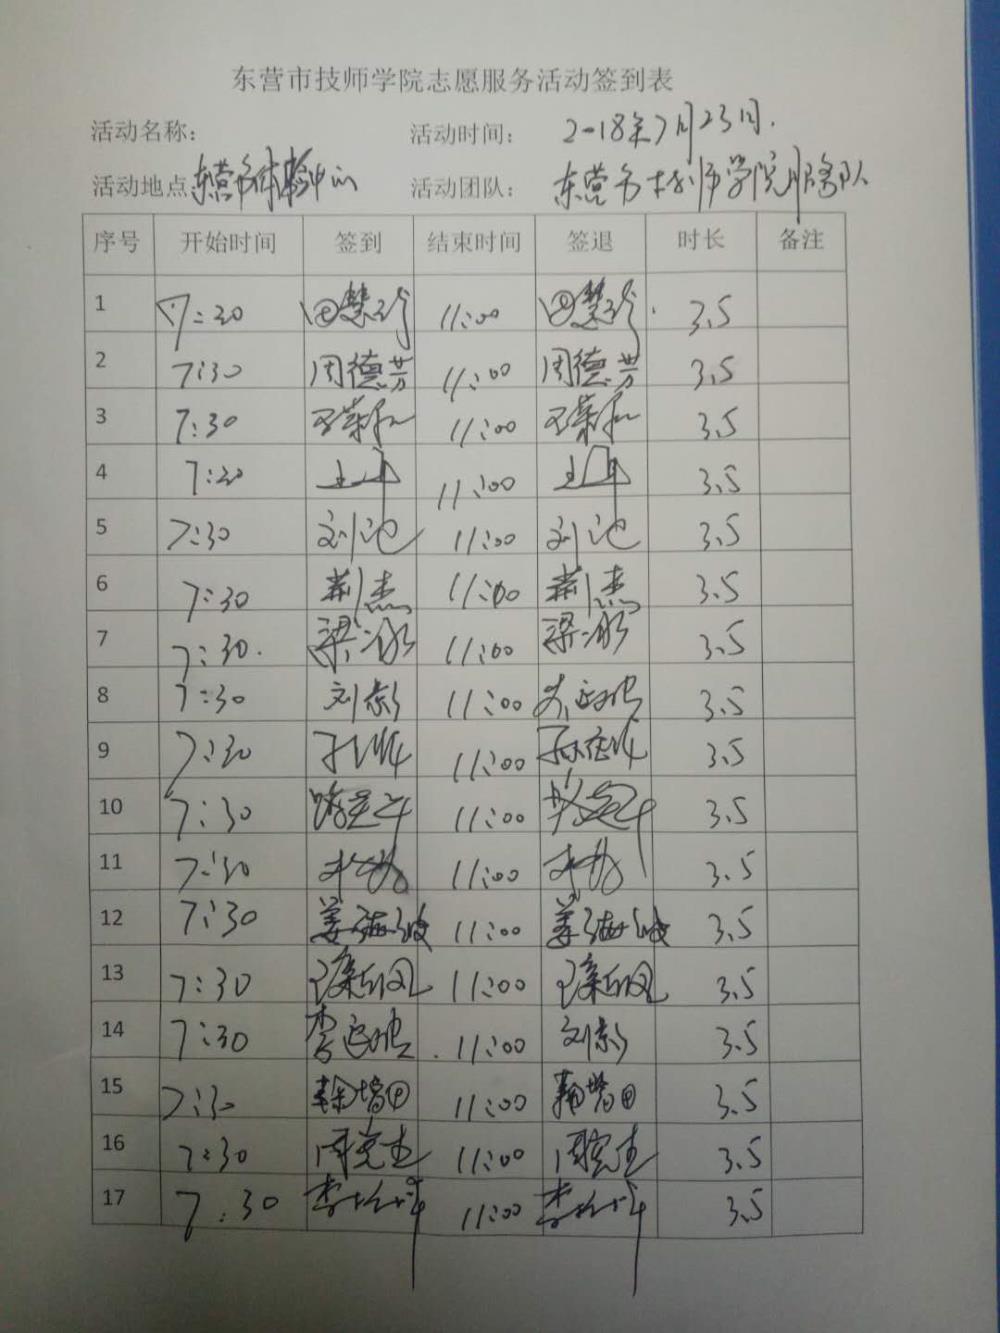 东营市技师学院志愿服务活动签到表
活动名称： 活动时间： 2018年7月23日.
活动地点 东营市体检中心 活动团队： 东营市技师学院服务队
序号 开始时间 签到 结束时间 签退 时长 备注
1 7:30 田慧 11:00 田慧 3.5
2 7:30 周德芳 11:00 周德芳 3.5
3 7:30 11:00 3.5
4 7:30 11:00 3.5
5 7:30 刘池 11:00 刘池 3.5
6 7:30 荆杰 11:00 荆杰 3.5
7 7:30. 梁冰 11:00 梁冰 3.5
8 7:30 刘彪 11:00 3.5
9 7:30 11:00 3.5
10 7:30 11:00 3.5
11 7:30 11:00 3.5
12 7:30 姜海波 11:00 姜海波 3.5
13 7:30 11:00 3.5
14 7:30 李 11:00 刘彪 3.5
15 7:30 11:00 3.5
16 7:30 周 11:00 周 3.5
17 7:30 李 11:00 李 3.5